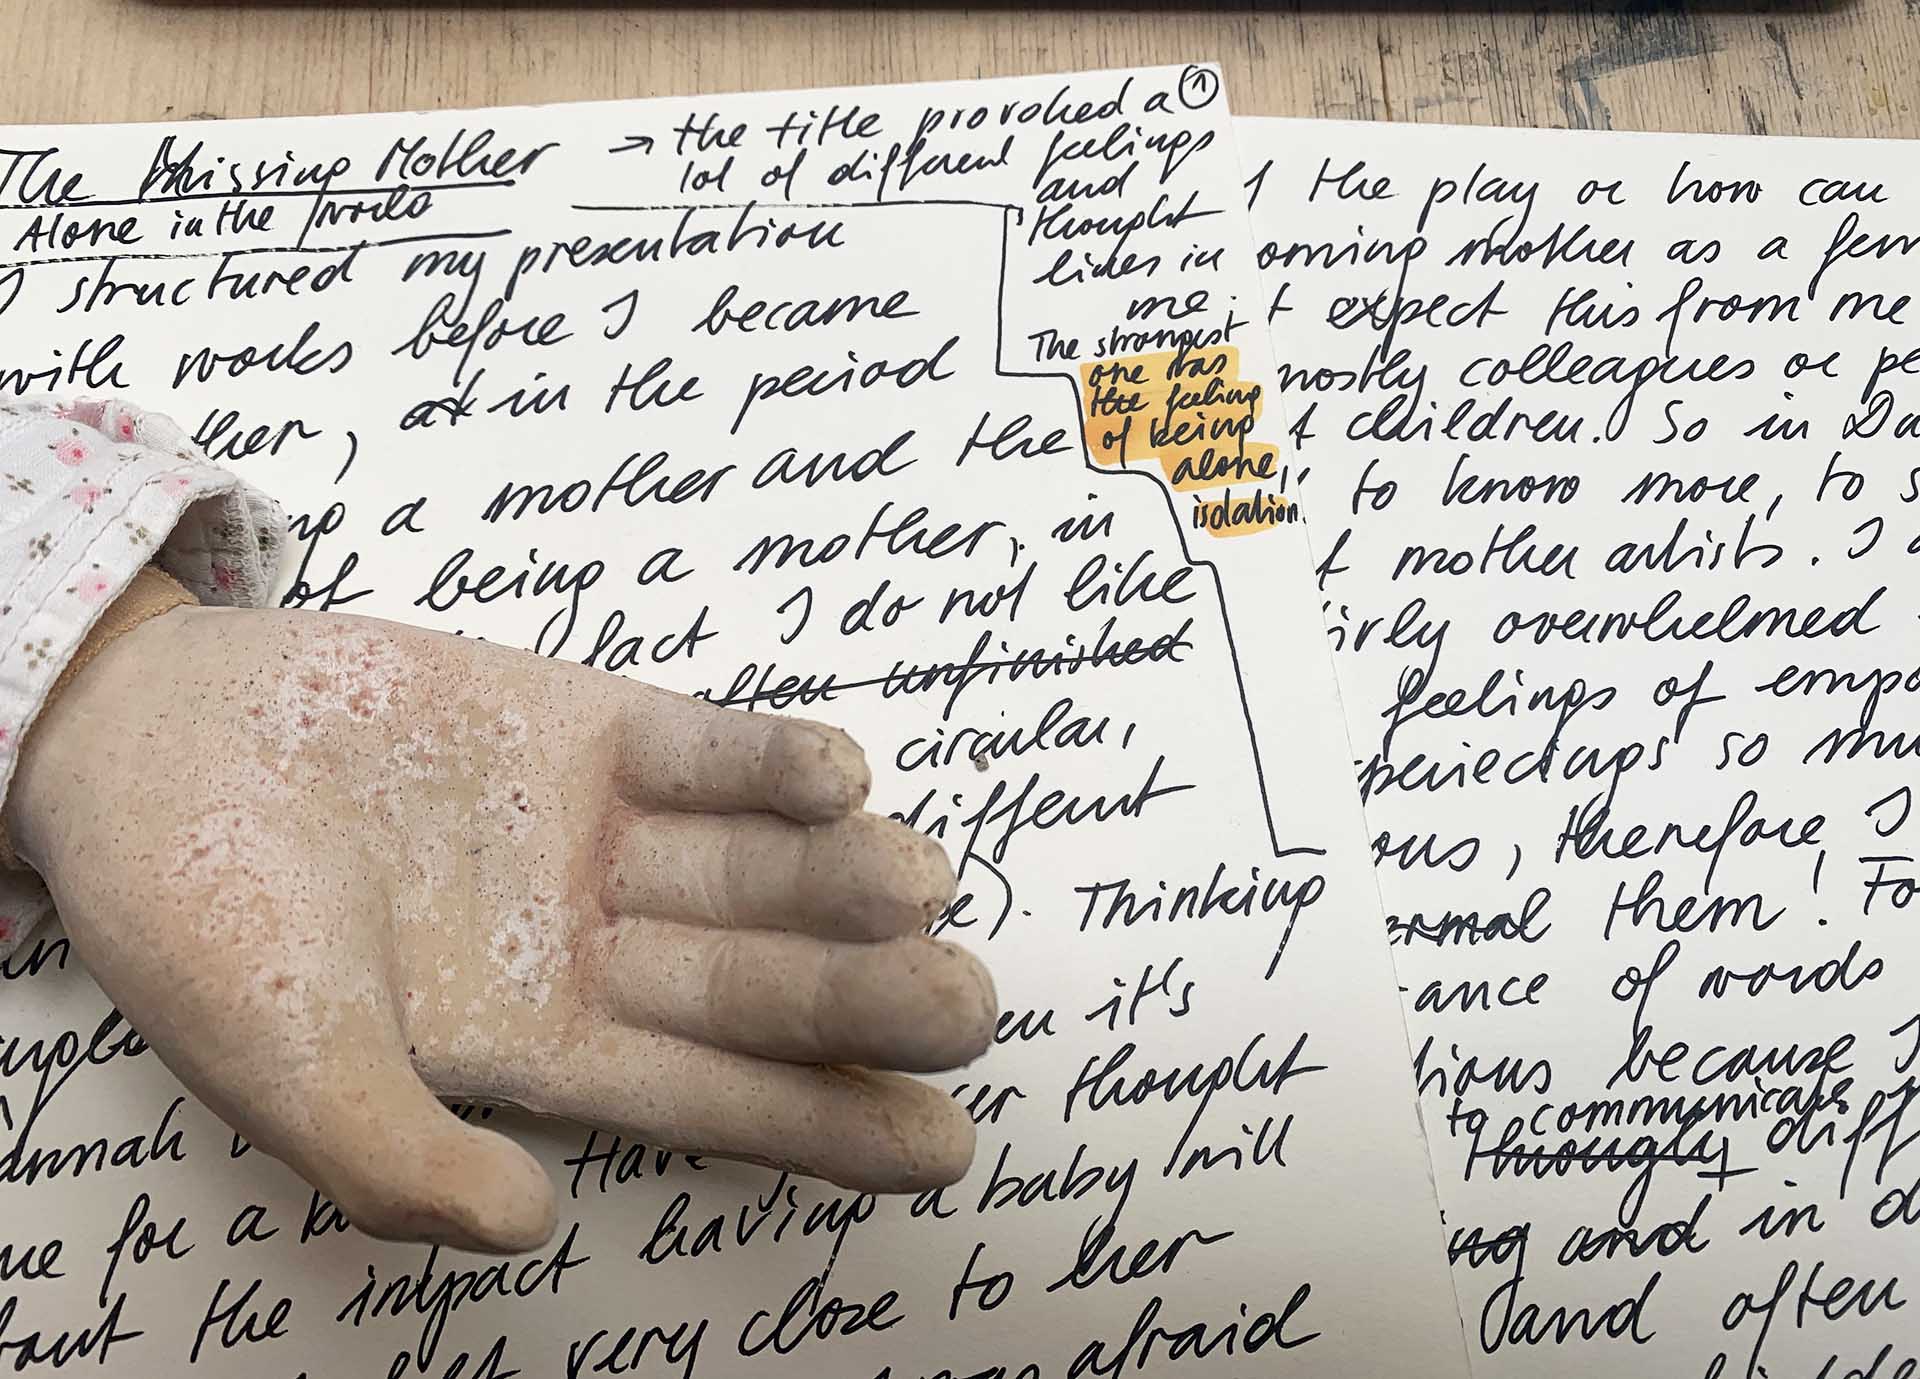 The Missing Mother
Alone in the World
→ the title provoked a ①
lot of different feelings
and
thought
lines in
me.
The strongest
one was
the feeling
of being
alone,
isolation.
I structured my presentation
with works before I became
ther, at in the period
ng a mother and the
of being a mother, in
fact I do not like
often unfinished
circular,
different
e). Thinking
en it's
er thought
annah
Have
a baby will
me for a
bout the impact having
very close to her
afraid
the play or how can
oming mother as a fem
t expect this from me
mostly colleagues or pe
t children. So in Du
to know more, to s
t mother artists. I
irly overwhelmed
feelings of empo
so mu
ous, therefore I
ermal them! Fo
ance of words
tions because I
to communicate
throughly diff
ng and in d
and often